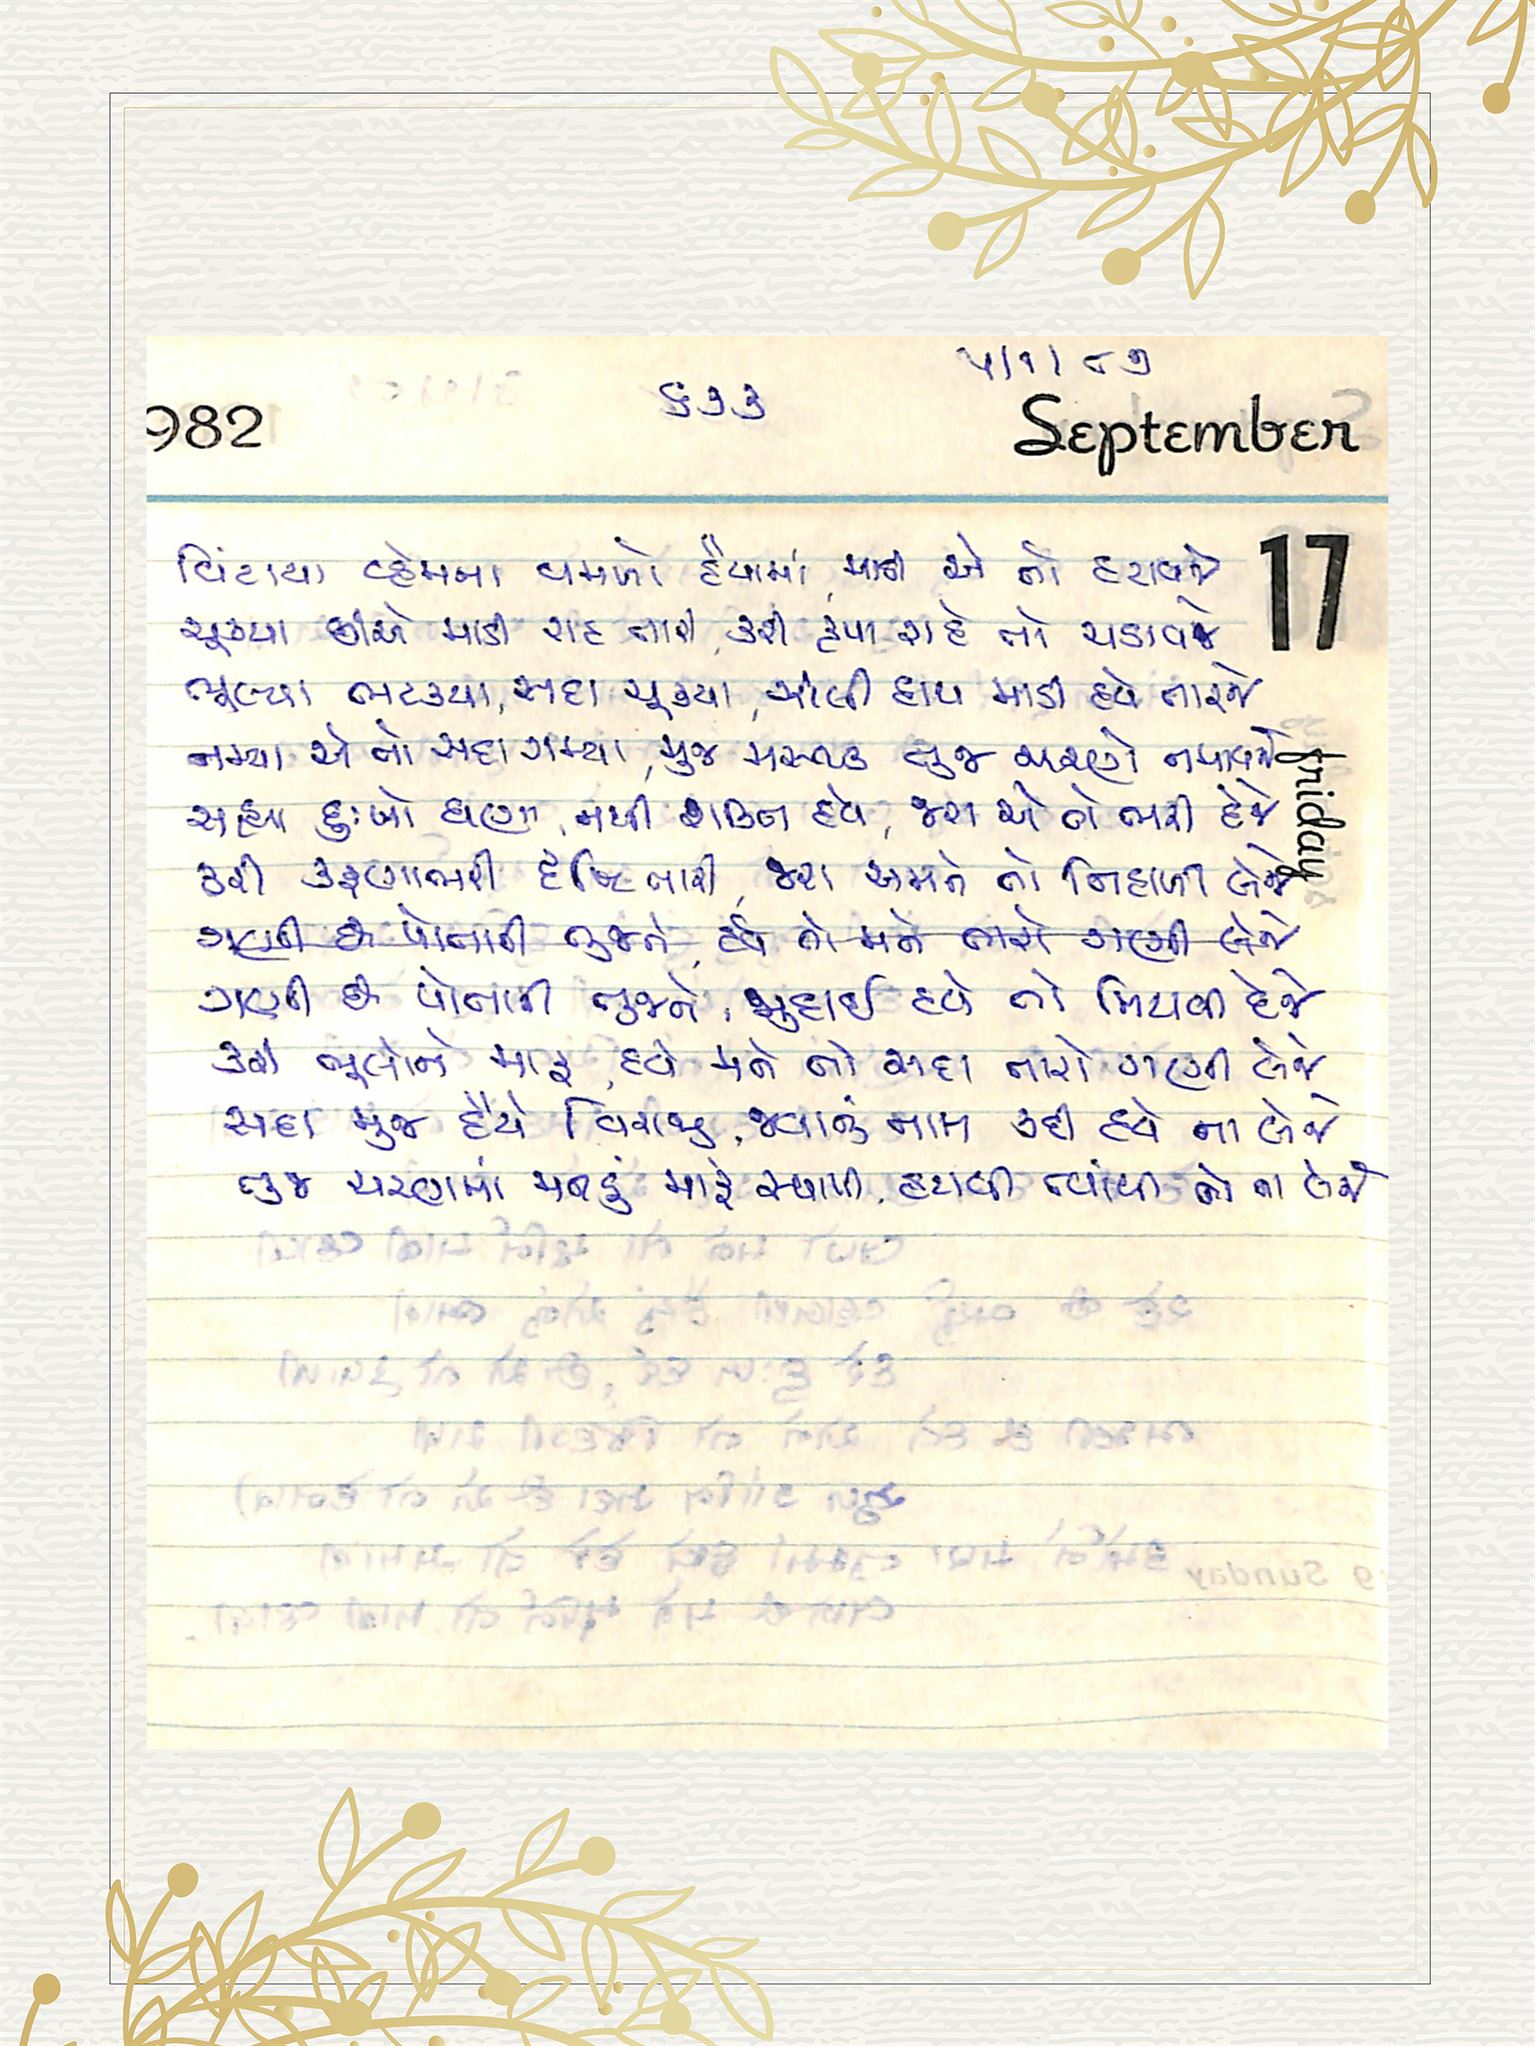 ૫/૧/૮૭
૬૩૩
982
September
17
friday
વિંટાયા વ્હેમના વમળો હૈયામાં, માડી એ તો હટાવજે
ચૂક્યા છીએ માડી રાહ તારી, કરી કૃપા રાહે તો ચડાવજે
ભૂલ્યા ભટક્યા, સદા ચૂક્યા, ઝાલી હાથ માડી હવે તારજે
નમ્યા એ તો સદા ગમ્યા, મુજ મસ્તક તુજ ચરણે નમાવજે
સહ્યા દુઃખો ઘણા, નથી શક્તિ હવે, જરા એ તો ભરી દેજે
કરી કરૂણાભરી દૃષ્ટિ તારી, જરા અમને તો નિહાળી લેજે
ગણી છે પોતાની તુજને, હવે તો મને તારો ગણી લેજે
ગણી છે પોતાની તુજને, જુદાઈ હવે તો મિટાવી દેજે
કરી ભૂલોને માફ, હવે મને તો સદા તારો ગણી લેજે
સદા મુજ હૈયે વિરાજી, જવાનું નામ કદી હવે ના લેજે
તુજ ચરણમાં મનડું મારૂં સ્થાપી, હટાવી ત્યાંથી તો ના લેજે